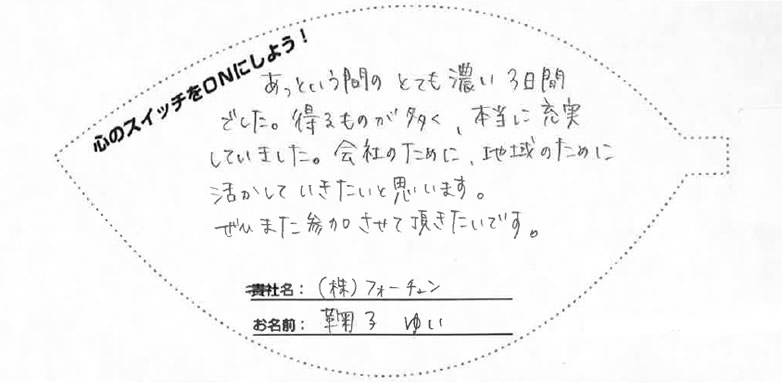 心のスイッチをONにしよう！
あっという間の とても濃い 3日間
でした。得るものが多く、本当に充実
していました。会社のために、地域のために
活かしていきたいと思います。
ぜひまた参加させて頂きたいです。
貴社名：（株）フォーチュン
お名前：鞠子 ゆい